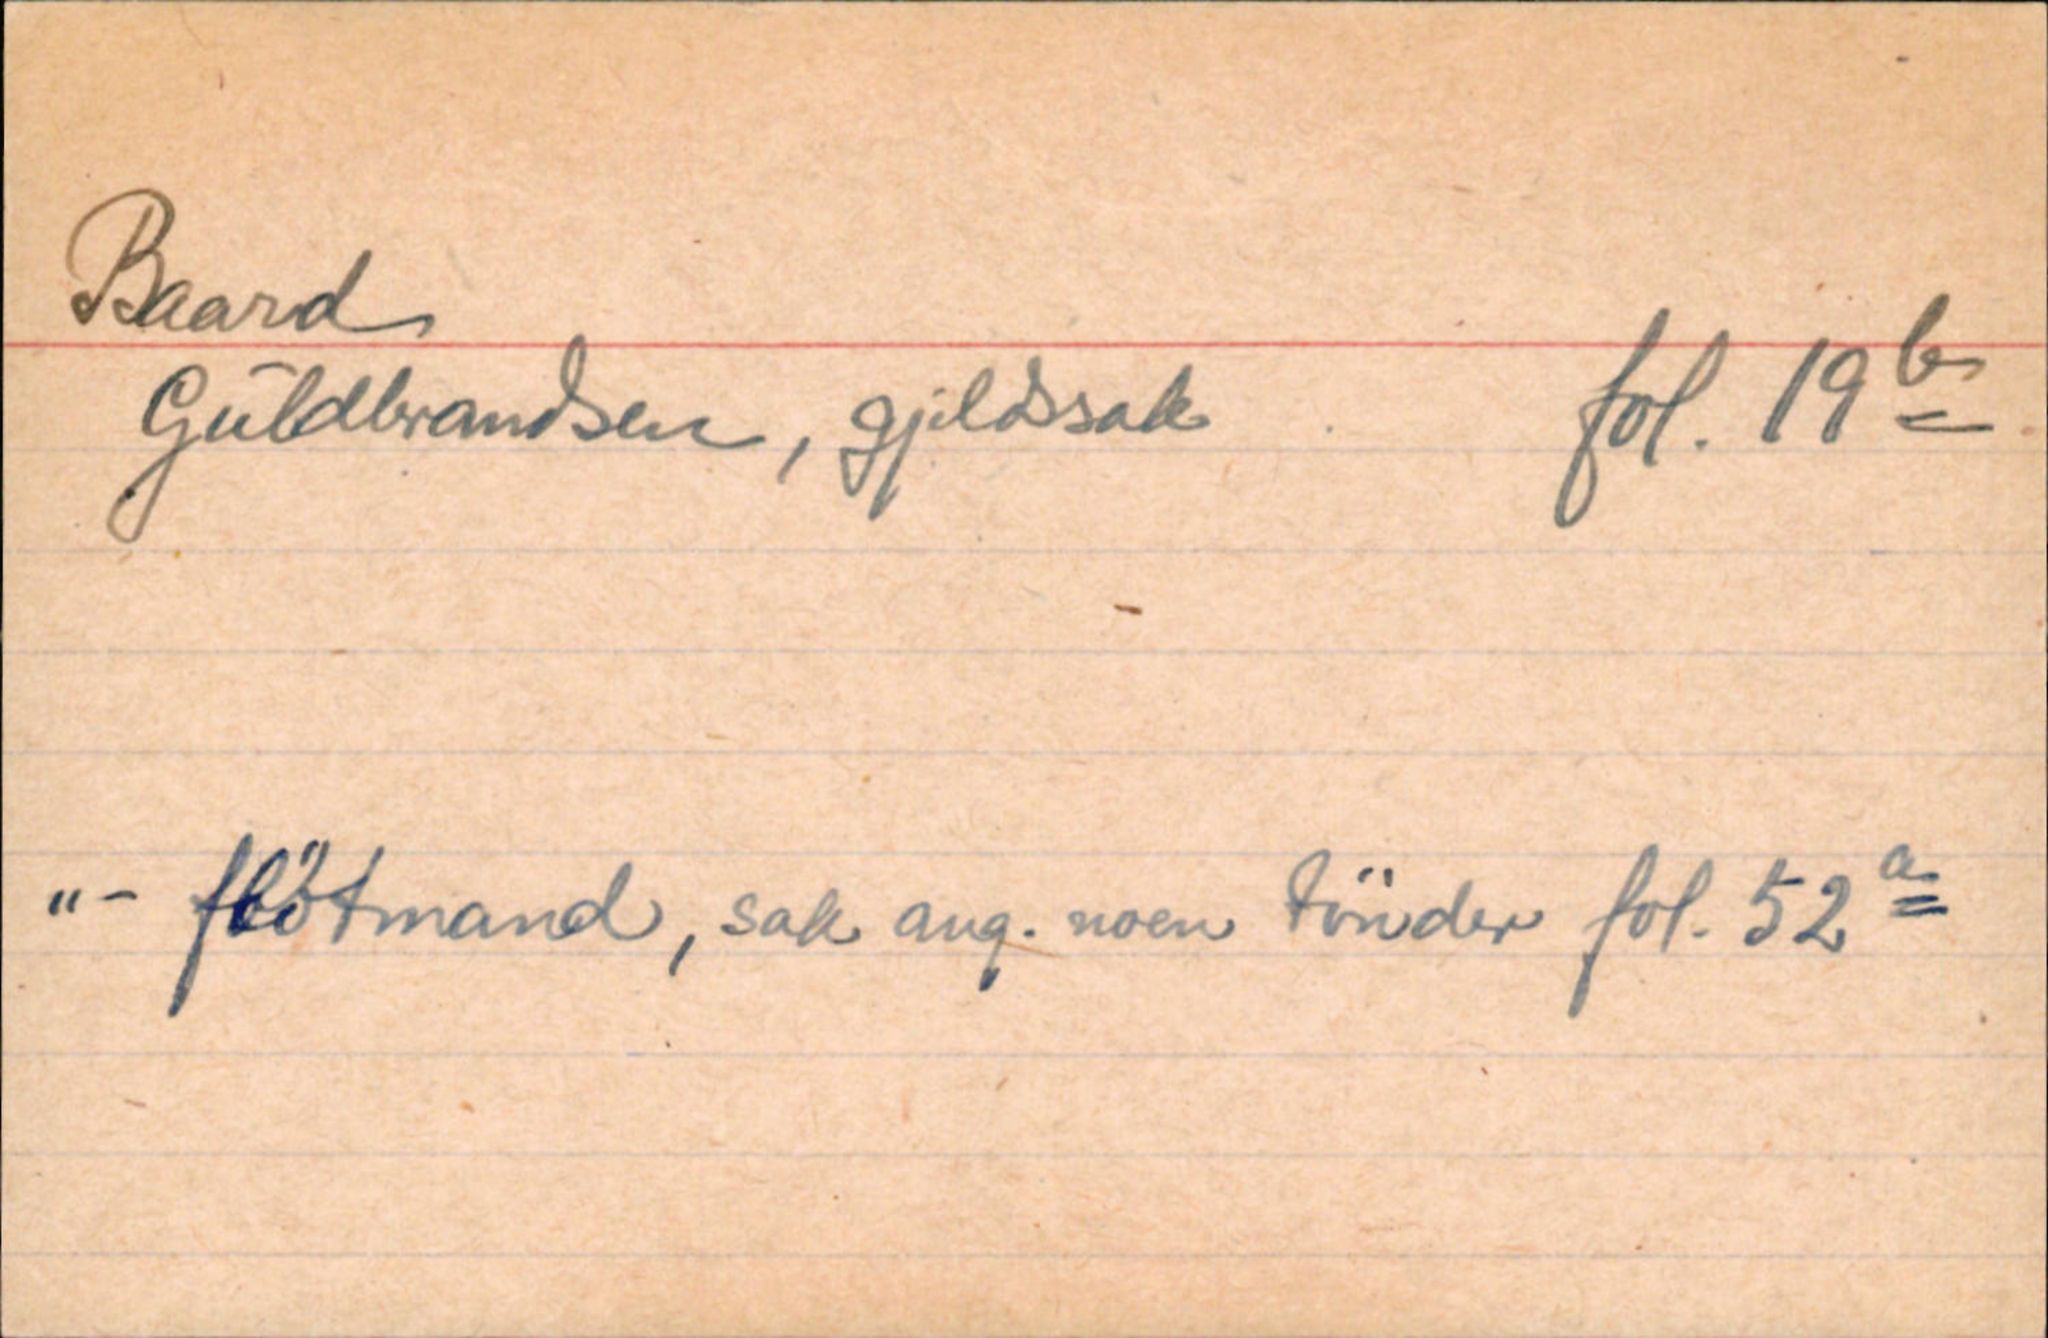 Baard
Guldbrandsen, gjeldssak fol. 19 b
"- flötmand, sak ang. noen tönder fol. 52 a